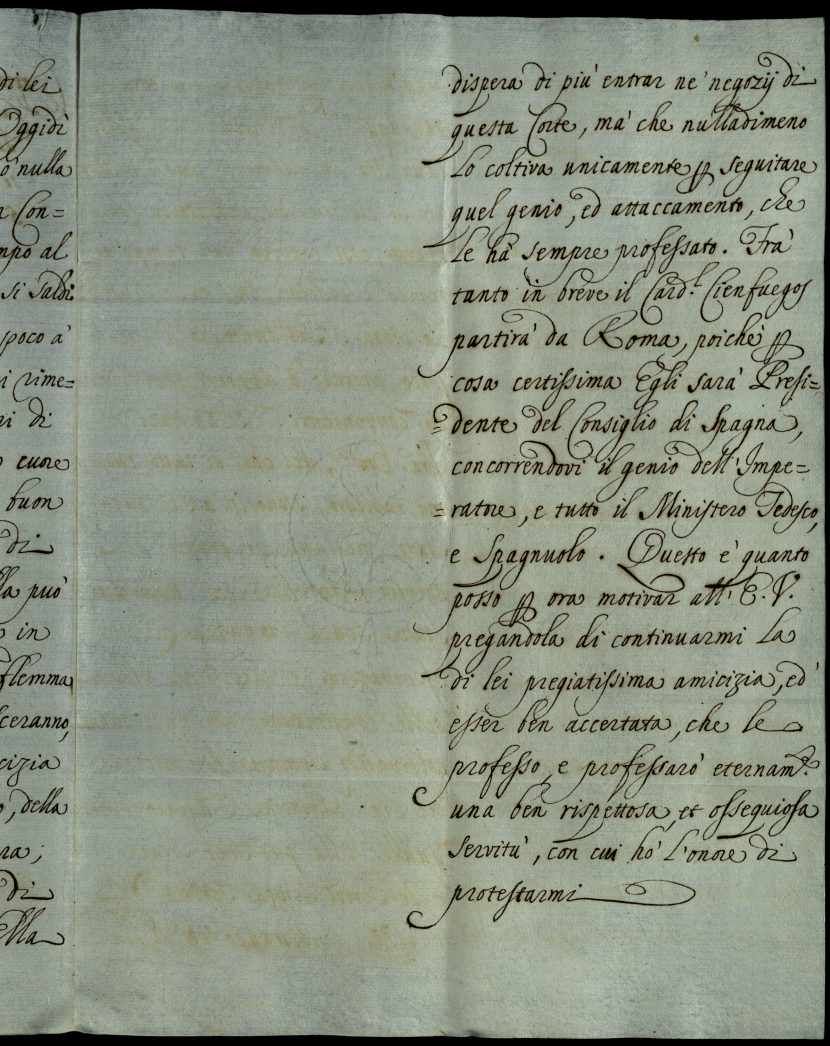 di lei
Oggidì
ò nulla
Con=
mpo al
si saldi
poco à
i rime=
ri di
cuore
buon
di
lla può
in
flemma
ceranno,
cizia
o, della
ra;
di
ella
dispera di più entrar ne' negozij di
questa Corte, mà che nulladimeno
Lo coltiva unicamente ꝑ seguitare
quel genio, ed attaccamento, che
Le hà sempre professato. Frà
tanto in breve il Card.l Cienfuegos
partirà da Roma, poiche ꝑ
cosa certissima Egli sarà Presi=
=dente del Consiglio di Spagna,
concorrendovi il genio dell'Impe=
=ratore, e tutto il Ministero Tedesco,
e Spagnuolo. Questo è quanto
posso ꝑ ora motivar all'E.V.
pregandola di continuarmi La
di lei pregiatissima amicizia, ed
esser ben accertata, che le
professo, e professarò eternam.te
una ben rispettosa, et ossequiosa
servitù, con cui hò l'onore di
protestarmi